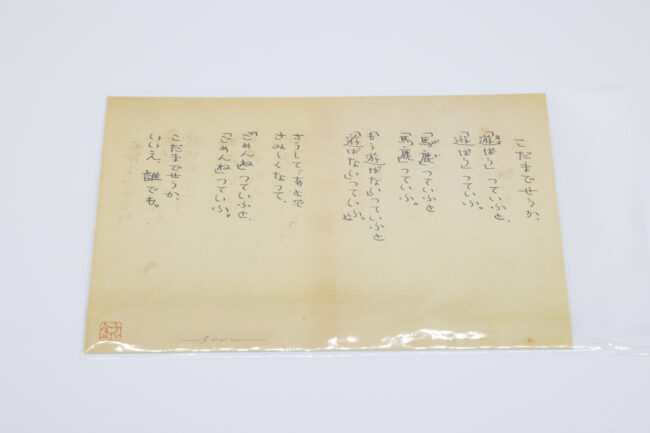 こだまでせうか、
「遊ばう」つていふと、
「遊ばう」つていふ。
「馬鹿」つていふと
「馬鹿」つていふ。
もう遊ばない」つていふと
「遊ばない」つていふ。
さうして、あとで
さみしくなつて、
「ごめんね」つていふと、
「ごめんね」つていふ。
こだまでせうか、
いいえ、誰でも。